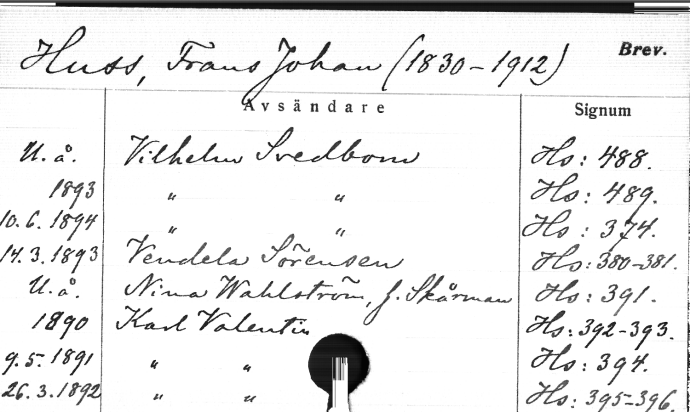 Huss, Frans Johan (1830-1912) Brev.
Avsändare Signum
U. å. Vilhelm Svedbom Hs: 488.
1893 " " Hs: 489.
10.6.1894 " " Hs: 374.
14.3.1893 Vendela Sörensen Hs: 380-381.
U. å. Nina Wahlström, f. Skårman Hs: 391.
1890 Karl Valentin Hs: 392-393.
9.5.1891 " " Hs: 394.
26.3.1892 " " Hs: 395-396.